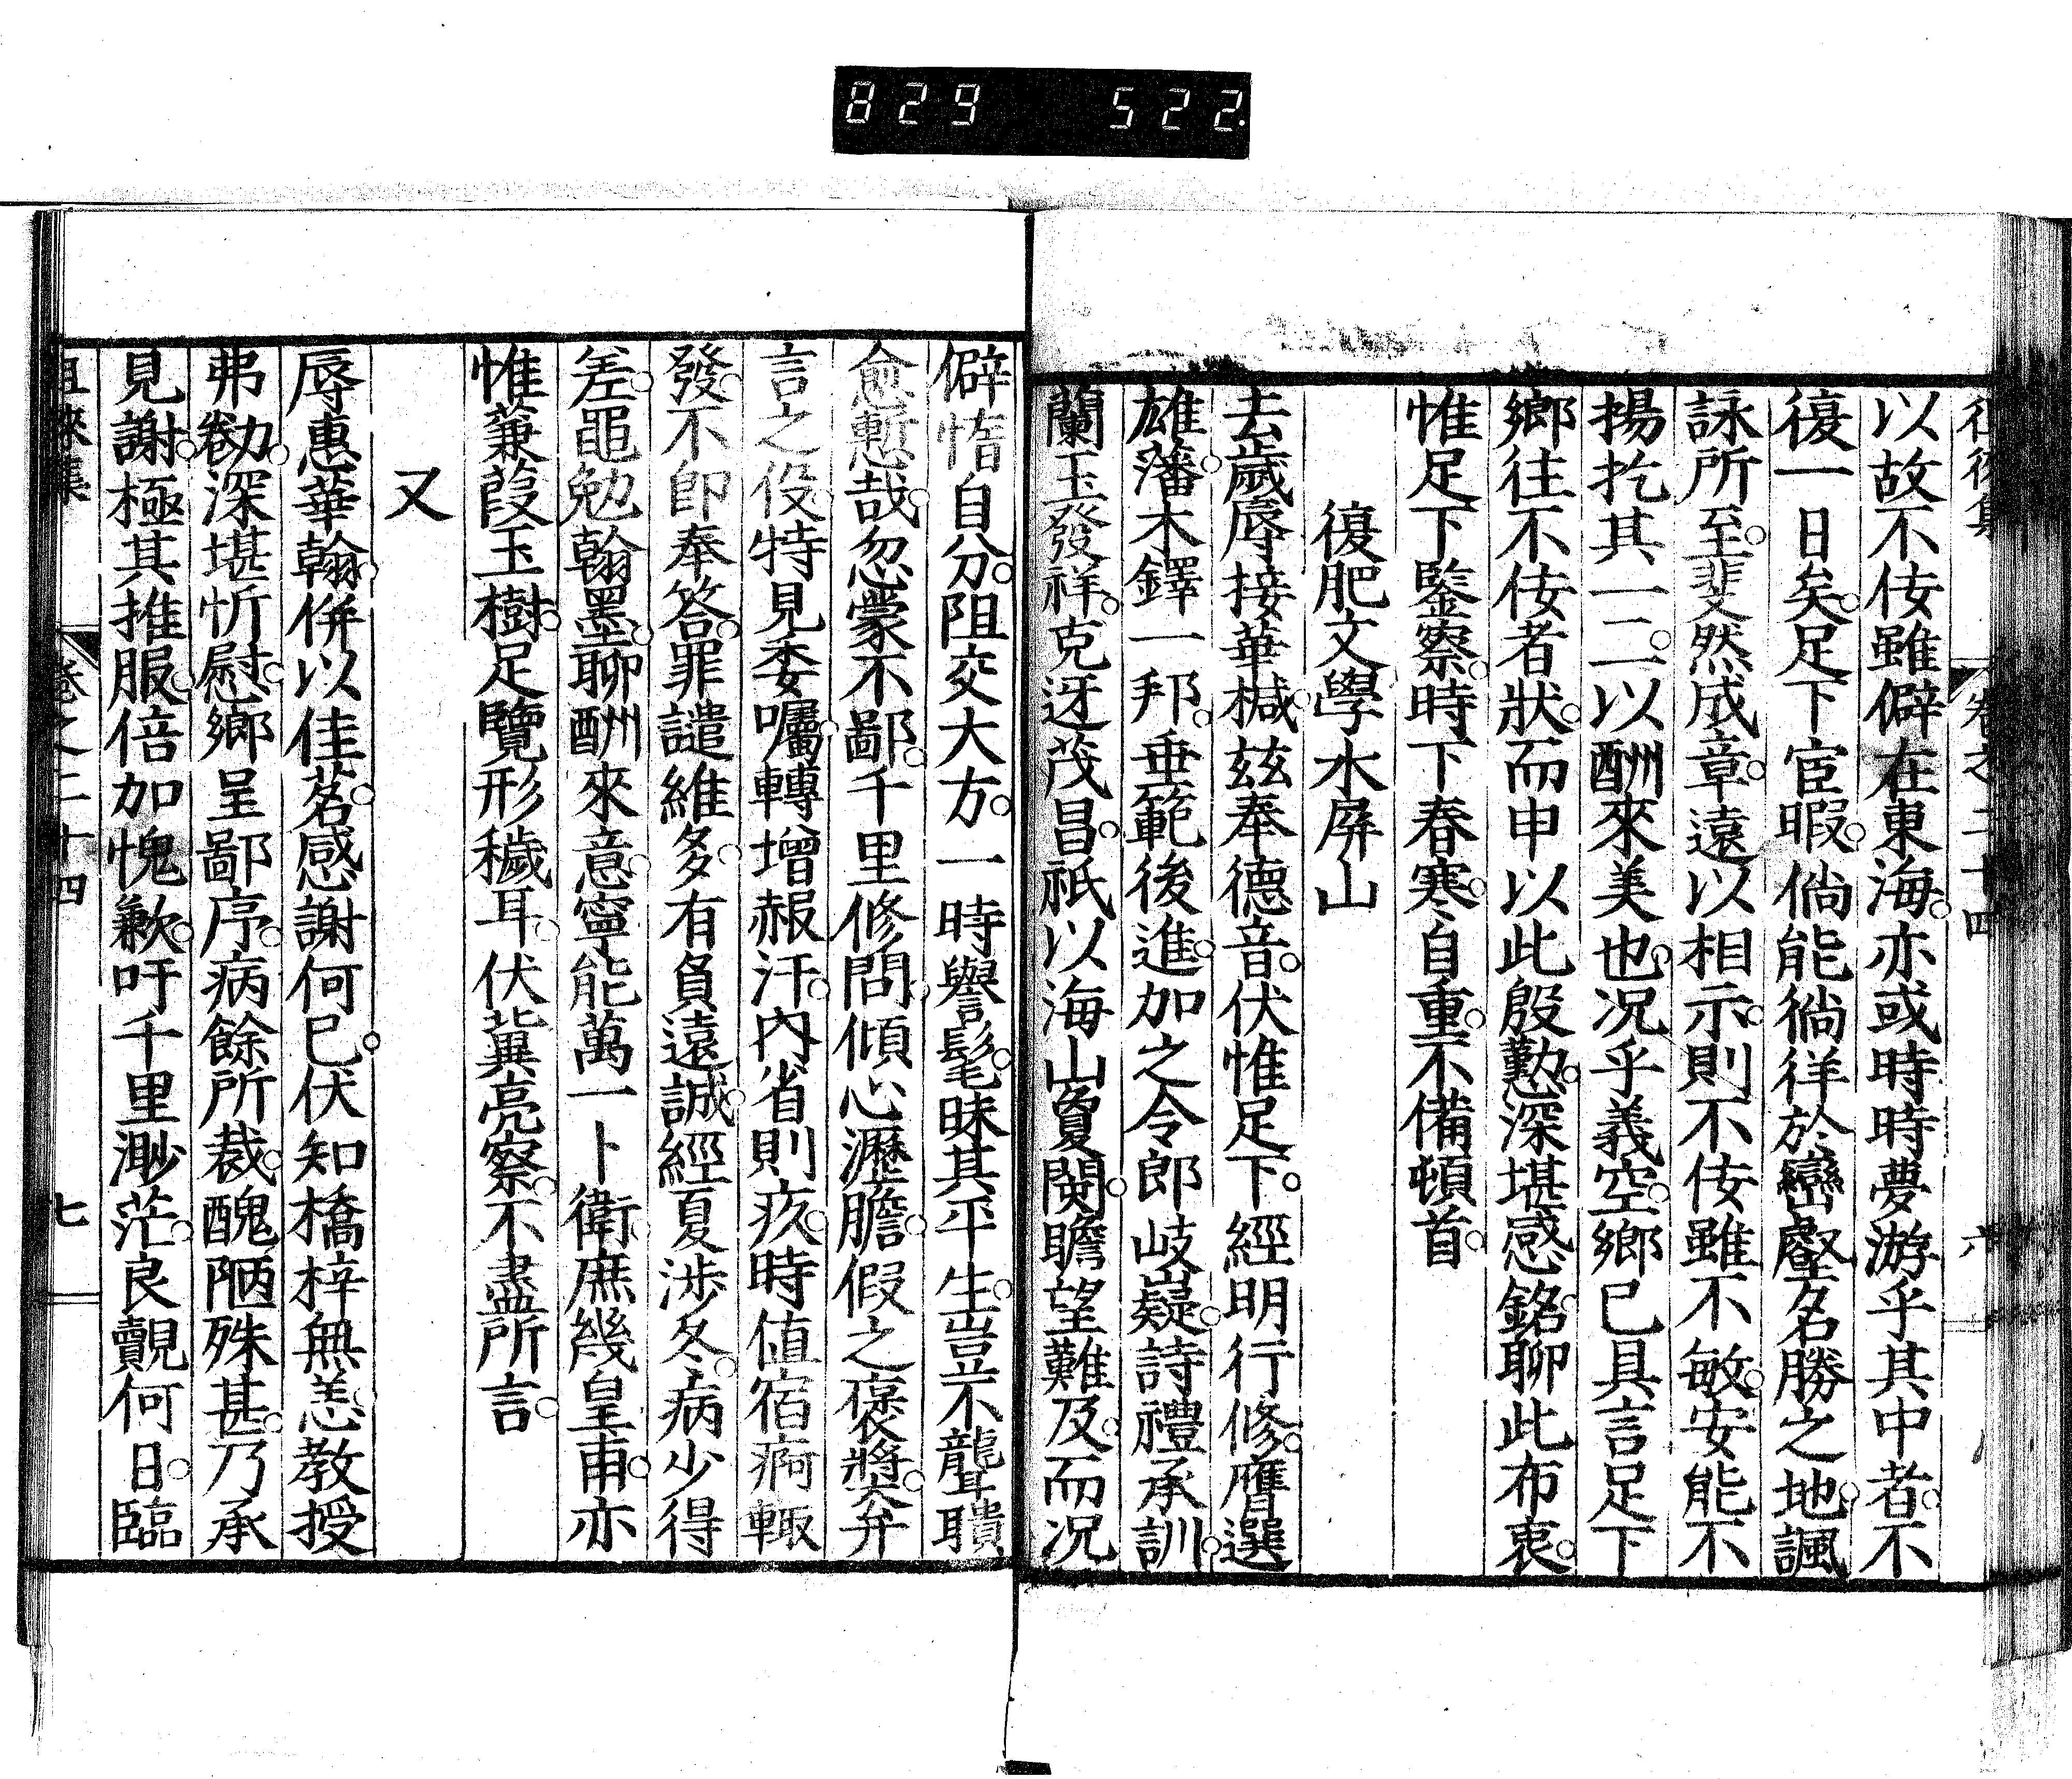 829 522
徂徠集 卷之二十四 六
以故不佞雖僻在東海亦或時時夢游乎其中者不
復一日矣足下宦暇倘能徜徉於巒壑名勝之地諷
詠所至斐然成章遠以相示則不佞雖不敏安能不
揚扢其一二以酬來美也况乎義空鄉已具言足下
鄉往不佞者狀而申以此殷懃深堪感銘聊此布衷
惟足下鑒察時下春寒自重不備頓首
復肥文學水屏山
去歲辱接華椷玆奉德音伏惟足下經明行修膺選
雄藩木鐸一邦垂範後進加之令郎岐嶷詩禮承訓
蘭玉發祥克迓茂昌祇以海山敻闊瞻望難及而况
僻惰自分阻交大方一時譽髦昧其平生豈不聾聵
愈慙哉忽蒙不鄙千里修問傾心瀝膽假之褒獎弁
言之役特見委囑轉增赧汗內省則疚時值宿痾輙
發不卽奉答罪譴維多有負遠誠經夏涉冬病少得
差黽勉翰墨聊酬來意寧能萬一卜衛庶幾皇甫亦
惟蒹葭玉樹足覽形穢耳伏冀亮察不盡所言
又
辱惠華翰併以佳茗感謝何已伏知橋梓無恙教授
弗勌深堪忻慰鄉呈鄙序病餘所裁醜陋殊甚乃承
見謝極其推服倍加愧歉吁千里渺茫良覿何日臨
徂徠集 卷之二十四 七